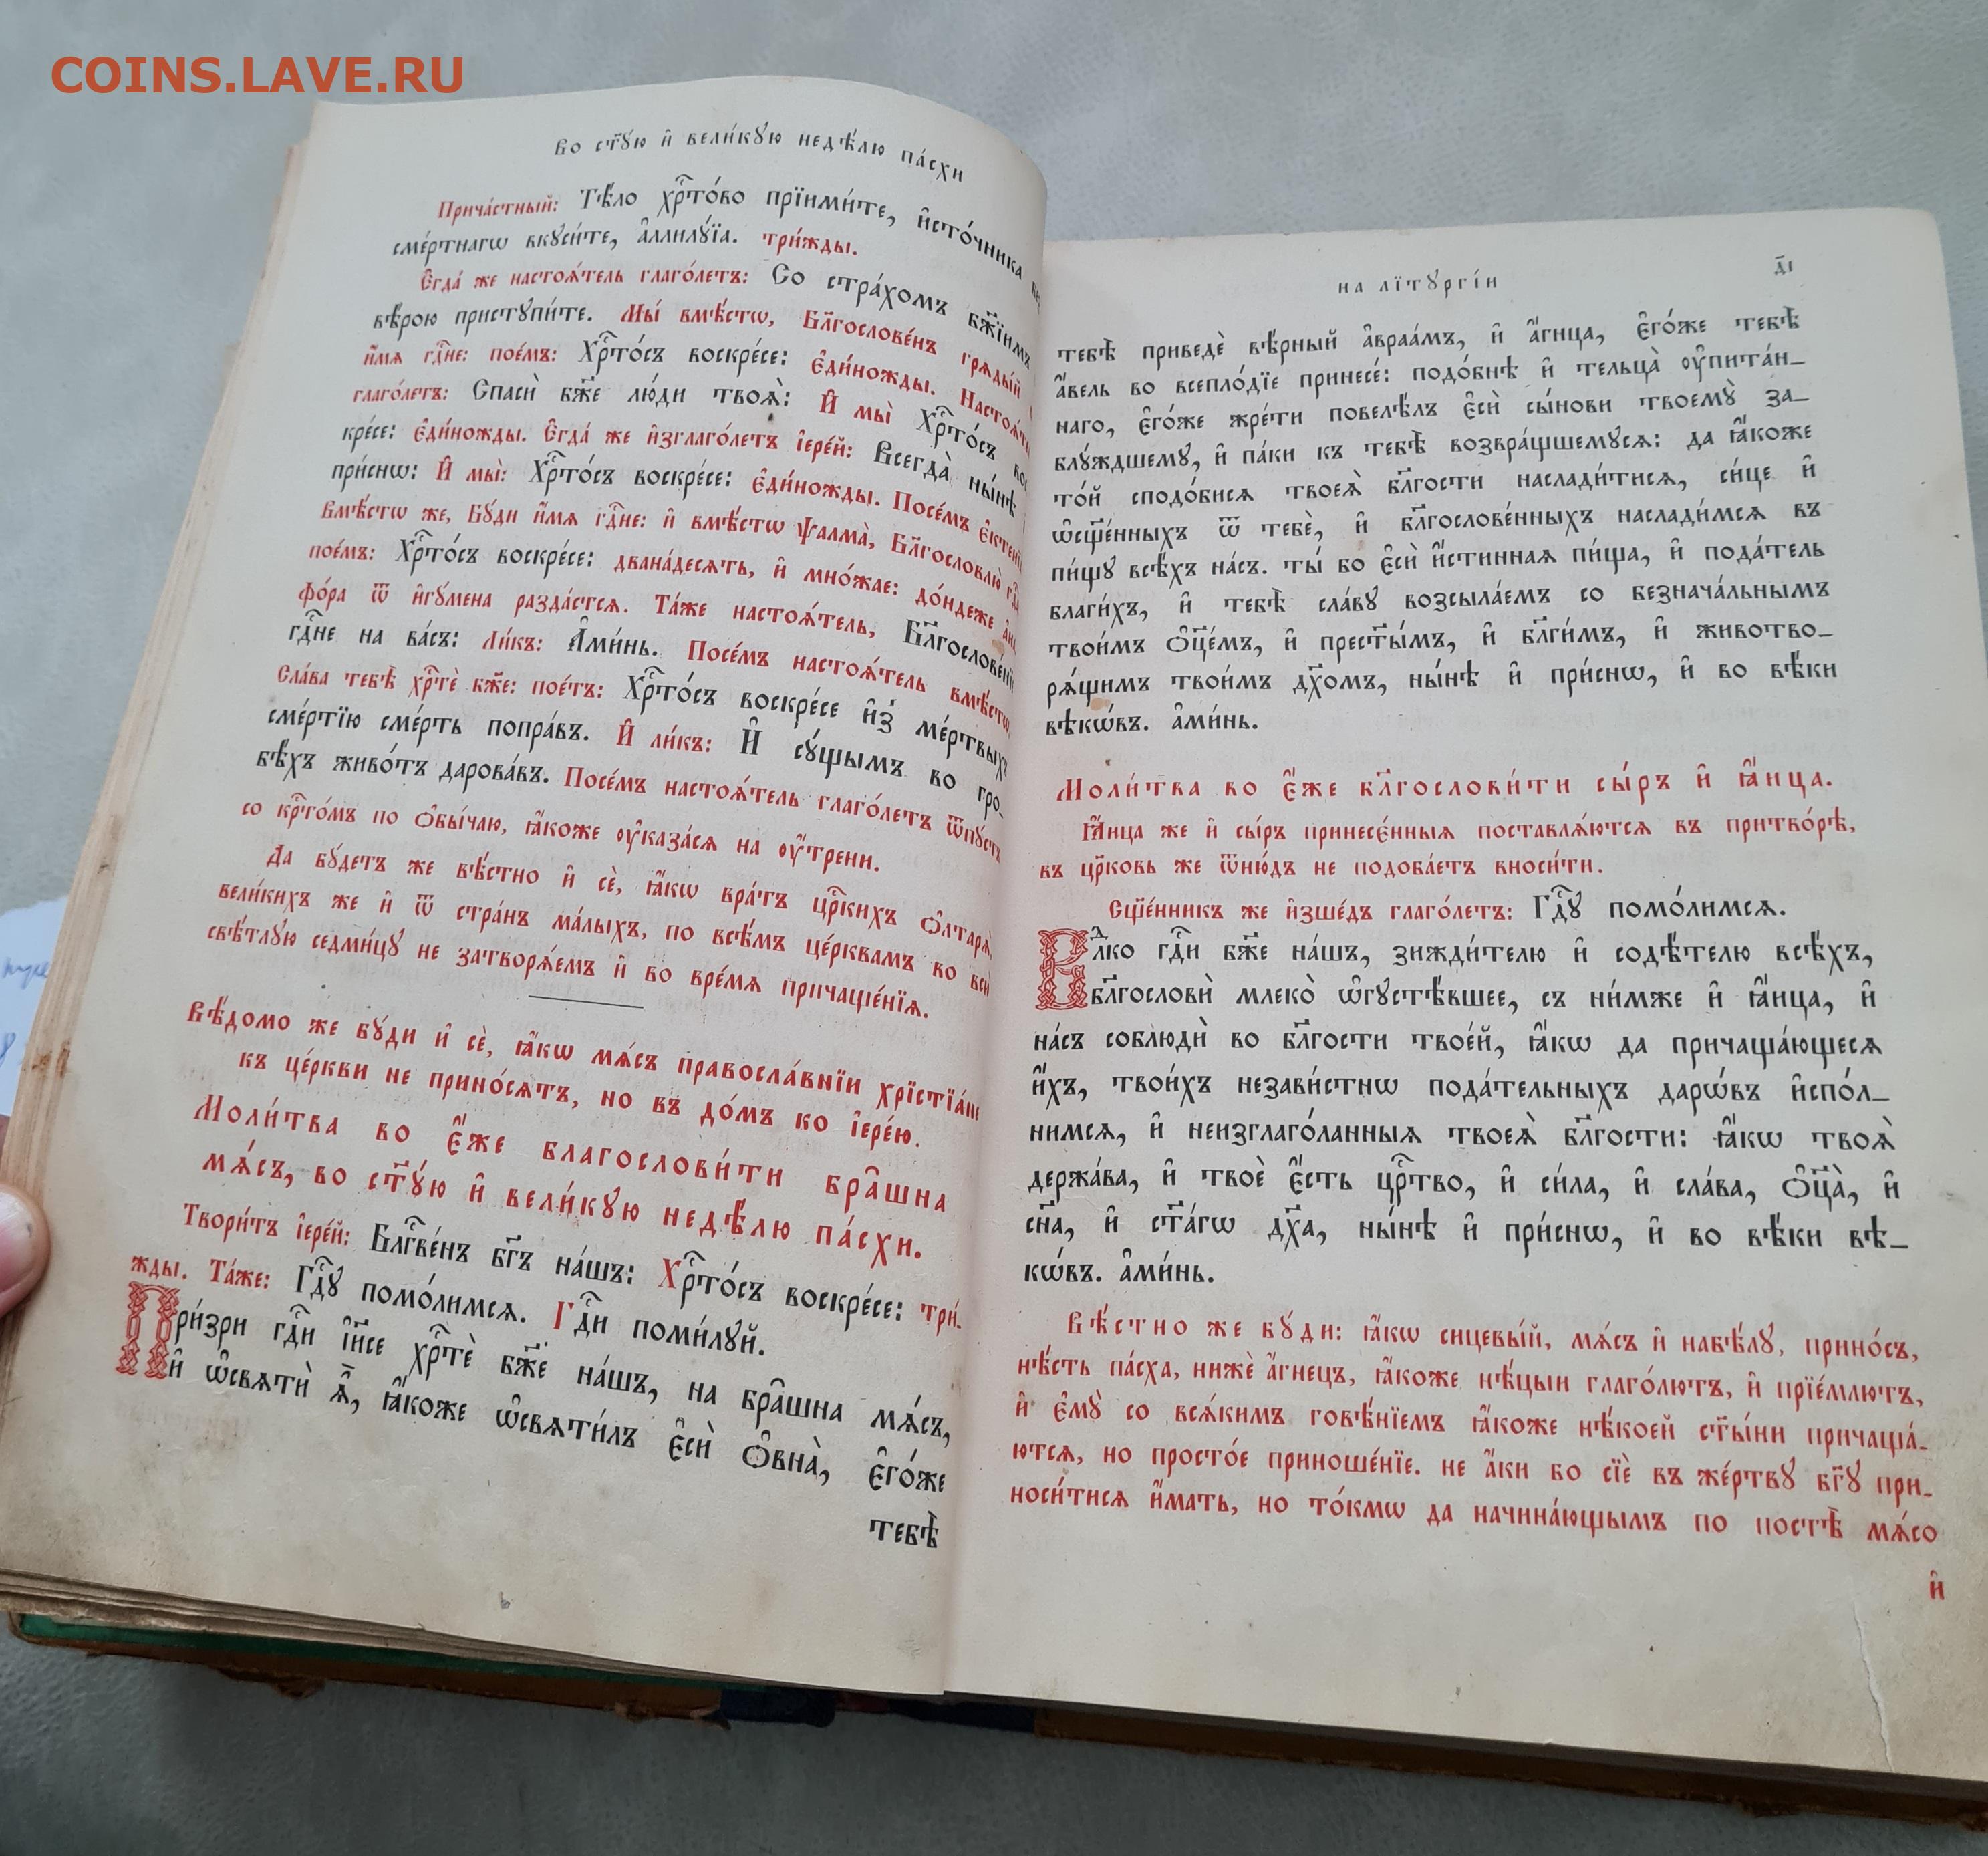 COINS.LAVE.RU
Во ст҃ꙋ́ю и҆ вели́кꙋю недѣ́лю па́схи
Прича́стный: Тѣ́ло хрⷭ҇то́во прїими́те, и҆сто́чника
сме́ртнагѡ вкꙋси́те, а҆ллилꙋ́їа. три́жды.
Є҆гда́ же настоѧ́тель глаго́летъ: Со стра́хомъ бж҃їимъ
вѣ́рою пристꙋпи́те. Мы́ вмѣ́стѡ, Бл҃гослове́нъ грѧды́й
и҆́мѧ гдⷭ҇не: пое́мъ: Хрⷭ҇то́съ воскре́се: є҆ди́ножды.
глаго́летъ: Спасѝ бж҃е лю́ди твоѧ̑: И҆ мы̀ Хрⷭ҇то́съ
кре́се: є҆ди́ножды. Є҆гда́ же и҆зглаго́летъ і҆ере́й: Всегда̀ ны́нѣ
при́снѡ: И҆ мы̀: Хрⷭ҇то́съ воскре́се: є҆ди́ножды. Посе́мъ
Вмѣ́стѡ же, Бꙋ́ди и҆́мѧ гдⷭ҇не: и҆ вмѣ́стѡ ѱалма̀, Бл҃гословлю̀
пое́мъ: Хрⷭ҇то́съ воскре́се: двана́десѧть, и҆ мно́жае: до́ндеже
фо́ра ѿ и҆гꙋ́мена разда́стсѧ. Та́же настоѧ́тель, Бл҃гослове́нїе
гдⷭ҇не на ва́съ: Ли́къ: А҆ми́нь. Посе́мъ настоѧ́тель вмѣ́стѡ,
Сла́ва тебѣ̀ хрⷭ҇тѐ бж҃е: пое́тъ: Хрⷭ҇то́съ воскре́се и҆з̾ ме́ртвыхъ
сме́ртїю сме́рть попра́въ. И҆ ли́къ: И҆ сꙋ́щымъ во гро-
бѣ́хъ живо́тъ дарова́въ. Посе́мъ настоѧ́тель глаго́летъ ѿпꙋ́стъ
со крⷭ҇то́мъ по ѻ҆бы́чаю, ꙗ҆́коже ᲂу҆каза́сѧ на ᲂу҆́трени.
Да бꙋ́детъ же вѣ́стно и҆ сѐ, ꙗ҆́кѡ вра́тъ црⷭ҇кихъ ѻ҆лтарѧ̀
вели́кихъ же и҆ ѿ стра́нъ ма́лыхъ, по всѣ̑мъ це́рквамъ во всю̀
свѣ́тлꙋю седми́цꙋ не затворѧ́емъ и҆ во вре́мѧ причаще́нїѧ.
Вѣ́домо же бꙋ́ди и҆ сѐ, ꙗ҆́кѡ мѧ́съ правосла́внїи хрїстїа́не
къ це́ркви не прино́сѧтъ, но въ до́мъ ко і҆ере́ю.
Моли́тва во є҆́же благослови́ти бра̑шна
мѧ́съ, во ст҃ꙋ́ю и҆ вели́кꙋю недѣ́лю па́схи.
Твори́тъ і҆ере́й: Блгⷭ҇ве́нъ бг҃ъ на́шъ: Хрⷭ҇то́съ воскре́се: три́-
жды. Та́же: Гдⷭ҇ꙋ помо́лимсѧ. Гдⷭ҇и поми́лꙋй.
При́зри гдⷭ҇и і҆и҃се хрⷭ҇тѐ бж҃е на́шъ, на бра̑шна мѧ́съ,
и҆ ѡ҆свѧтѝ ѧ҆̀, ꙗ҆́коже ѡ҆свѧти́лъ є҆сѝ ѻ҆вна̀, є҆го́же
тебѣ̀
на лїтꙋргі́и
д҃і
тебѣ̀ приведѐ вѣ́рный а҆враа́мъ, и҆ а҆́гнца, є҆го́же тебѣ̀
а҆́вель во всепло́дїе принесе́: подо́бнѣ и҆ тельца̀ ᲂу҆пита́н-
наго, є҆го́же жре́ти повелѣ́лъ є҆сѝ сы́нови твоемꙋ̀ за-
блꙋ́ждшемꙋ, и҆ па́ки къ тебѣ̀ возвра́щшемꙋсѧ: да ꙗ҆́коже
то́й сподо́бисѧ твоеѧ̀ бл҃гости наслади́тисѧ, си́це и҆
ѡ҆сщ҃е́нныхъ ѿ тебѐ, и҆ бл҃гослове́нныхъ наслади́мсѧ въ
пи́щꙋ всѣ́хъ на́съ. ты́ бо є҆сѝ и҆́стиннаѧ пи́ща, и҆ пода́тель
благи́хъ, и҆ тебѣ̀ сла́вꙋ возсыла́емъ со безнача́льнымъ
твои́мъ ѻ҆ц҃е́мъ, и҆ прест҃ы́мъ, и҆ бл҃ги́мъ, и҆ животво-
рѧ́щимъ твои́мъ дх҃омъ, ны́нѣ и҆ при́снѡ, и҆ во вѣ́ки
вѣкѡ́въ. а҆ми́нь.
Моли́тва во є҆́же бл҃гослови́ти сы́ръ и҆ ꙗ҆́ица.
Ꙗ҆́ица же и҆ сы́ръ принесє́нныѧ поставлѧ́ютсѧ въ притво́рѣ,
въ цр҃ковь же ѿню́дъ не подоба́етъ вноси́ти.
Сщ҃е́нникъ же и҆зше́дъ глаго́летъ: Гдⷭ҇ꙋ помо́лимсѧ.
Влⷣко гдⷭ҇и бж҃е на́шъ, зижди́телю и҆ содѣ́телю всѣ́хъ,
бл҃гословѝ млеко̀ ѡ҆гꙋстѣ́вшее, съ ни́мже и҆ ꙗ҆́ица, и҆
на́съ соблюдѝ во бл҃гости твое́й, ꙗ҆́кѡ да причаща́ющесѧ
и҆́хъ, твои́хъ незави́стнѡ пода́тельныхъ дарѡ́въ и҆спо́л-
нимсѧ, и҆ неизглаго́ланныѧ твоеѧ̀ бл҃гости: ꙗ҆́кѡ твоѧ̀
держа́ва, и҆ твоѐ є҆́сть црⷭ҇тво, и҆ си́ла, и҆ сла́ва, ѻ҆ц҃а̀, и҆
сн҃а, и҆ ст҃а́гѡ дх҃а, ны́нѣ и҆ при́снѡ, и҆ во вѣ́ки вѣ-
кѡ́въ. а҆ми́нь.
Вѣ́стно же бꙋ́ди: ꙗ҆́кѡ сицевы́й, мѧ́съ и҆ набѣ́лꙋ, прино́съ,
нѣ́сть па́сха, нижѐ а҆́гнецъ, ꙗ҆́коже нѣ́цыи глаго́лютъ, и҆ прїе́млютъ,
и҆ є҆мꙋ̀ со всѧ́кимъ говѣ́нїемъ ꙗ҆́коже нѣ́коей ст҃ы́ни причаща́-
ютсѧ, но просто́е приноше́нїе. не а҆́ки бо сїѐ въ же́ртвꙋ бг҃ꙋ при-
носи́тисѧ и҆́мать, но то́кмѡ да начина́ющымъ по постѣ̀ мѧ́со
и҆